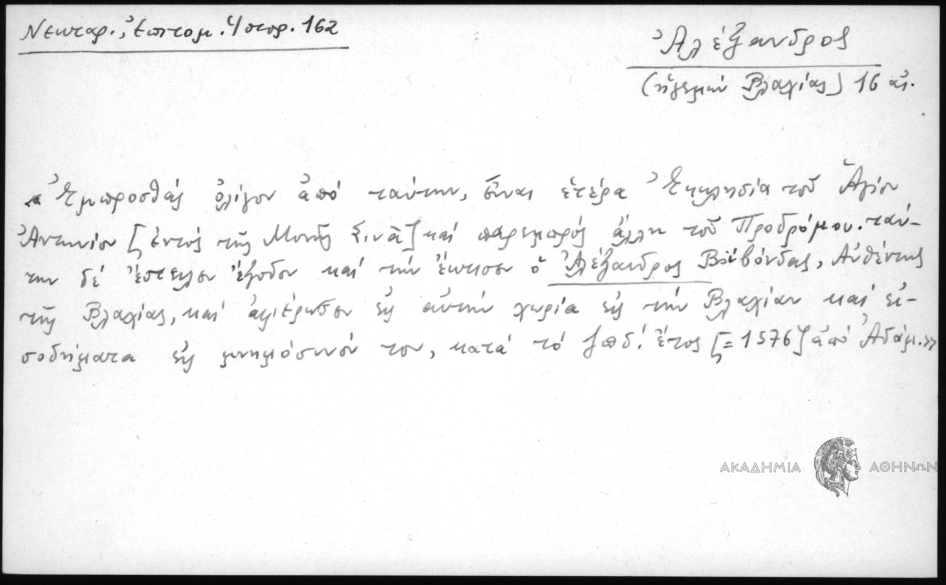 Νεκταρ., Ἐπιτομ. Ἱστορ. 162
Ἀλέξανδρος
(ἡγεμὼν Βλαχίας) 16 αἰ.
«Ἐμπροσθάς ὀλίγον ἀπό ταύτην, εἶναι ἑτέρα Ἐκκλησία τοῦ Ἁγίου
Ἀντωνίου [ἐντός τῆς Μονῆς Σινᾶ] καί παρεμπρός ἄλλη τοῦ Προδρόμου. ταύ-
την δέ ἔστειλεν ἔξοδον καί τήν ἔκτισεν ὁ Ἀλέξανδρος Βοϊβόνδας, Αὐθέντης
τῆς Βλαχίας, καί ἀφιέρωσεν εἰς αὐτήν χωρία εἰς τήν Βλαχίαν καί εἰ-
σοδήματα εἰς μνημόσυνόν του, κατά τό ζπδ΄. ἔτος [=1576] ἀπό Ἀδάμ.»
ΑΚΑΔΗΜΙΑ ΑΘΗΝΩΝ